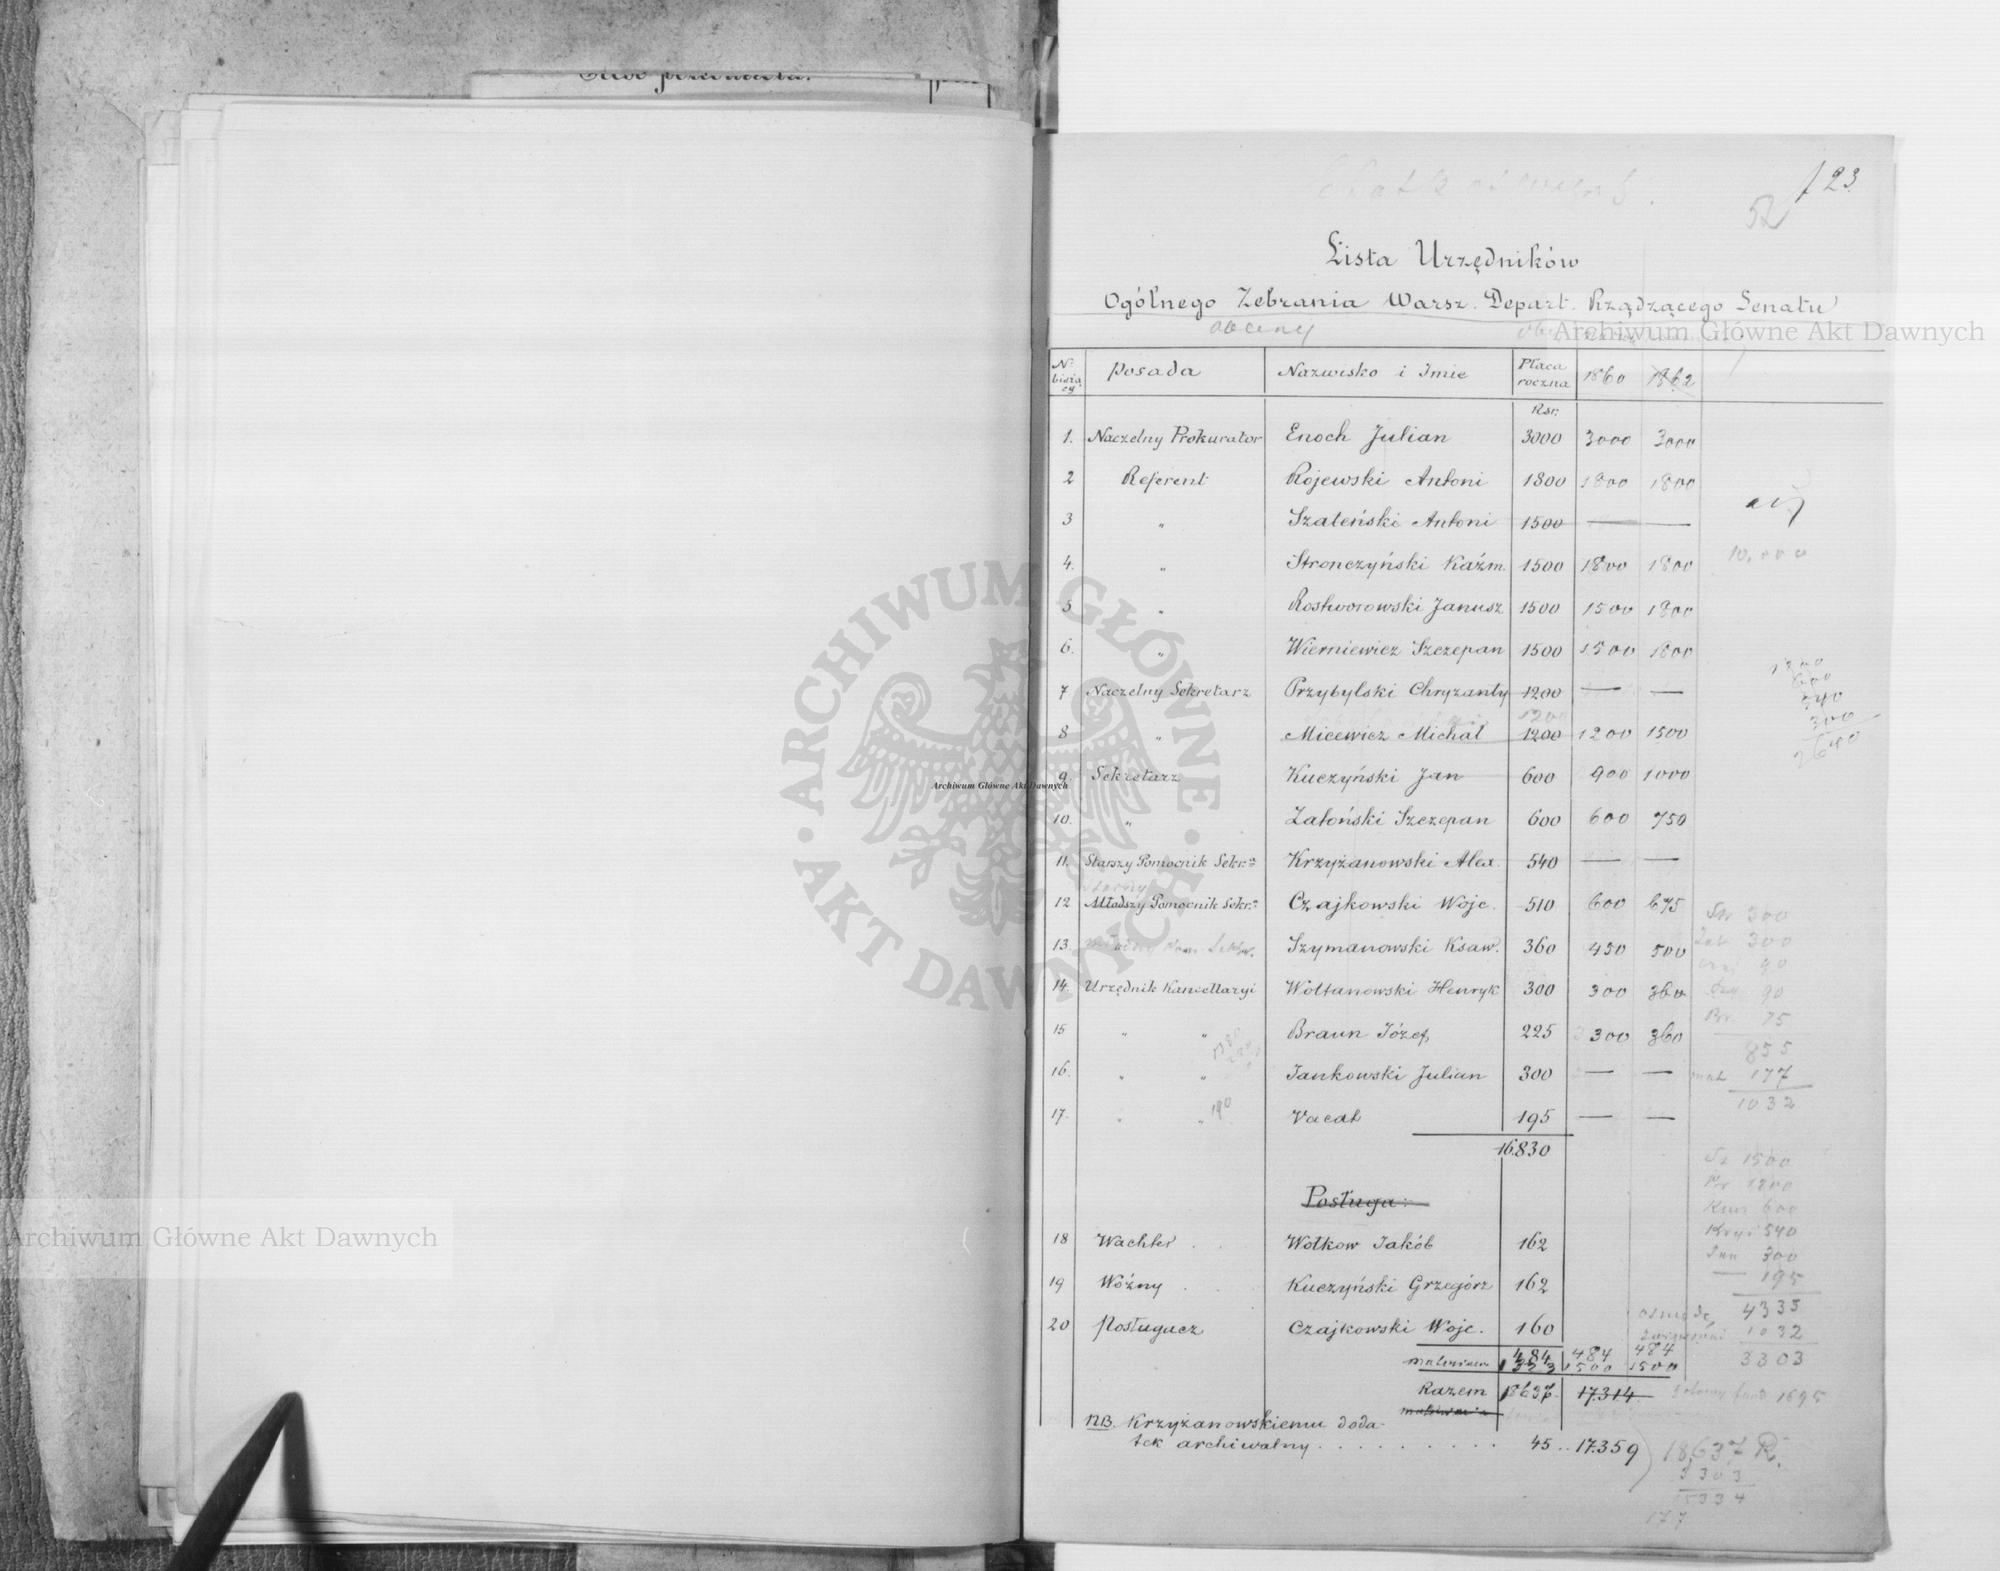 123
52
Lista Urzędników
Ogólnego Zebrania Warsz. Depart. Rządzącego Senatu
obecny
Archiwum Główne Akt Dawnych
Nr bieżący Posada Nazwisko i Imie Płaca roczna 1860 1862
Rsr.
1. Naczelny Prokurator Enoch Julian 3000 3000 3000
2 Referent Rojewski Antoni 1800 1800 1800
3 " Szaleński Antoni 1500 — —
4. " Stronczyński Kaźm. 1500 1800 1800
10.000
5 " Rostworowski Janusz 1500 1500 1800
6. " Wierniewicz Szczepan 1500 1500 1800
7 Naczelny Sekretarz Przybylski Chryzanty 1200 — —
1200
600
540
300
2640
1200
8 " Micewicz Michał 1200 1200 1500
9. Sekretarz Kuczyński Jan 600 900 1000
Archiwum Główne Akt Dawnych
10. " Zatoński Szczepan 600 600 750
11. Starszy Pomocnik Sekr.a Krzyżanowski Alex. 540 — —
starszy
12 Młodszy Pomocnik Sekr.a Czajkowski Wojc. 510 600 675
13. Młodszy Pom. Sekr. Szymanowski Ksaw. 360 450 500
14. Urzędnik Kancellaryi Woltanowski Henryk 300 300 360
15 " " Braun Józef 225 300 360
16. " " Jankowski Julian 300 — —
17. " " 190 Vacat 195 — —
16.830
300
300
90
90
Br. 75
855
177
1032
Posługa:
18 Wachter Wołkow Jakób 162
19 Woźny Kuczyński Grzegórz 162
20 Posługacz Czajkowski Wojc. 160
484 484 484
1323 1500 1500
Razem 18637. 17.314
NB. Krzyżanowskiemu doda-
tek archiwalny . . . . . . . . . 45 .. 17.359
Sz 1500
Pr 1200
Kucz 600
Krzy 540
Jan 300
— 195
4335
1032
3303
1695
18,637 R.
3303
15334
177
Archiwum Główne Akt Dawnych
ARCHIWUM GŁÓWNE AKT DAWNYCH